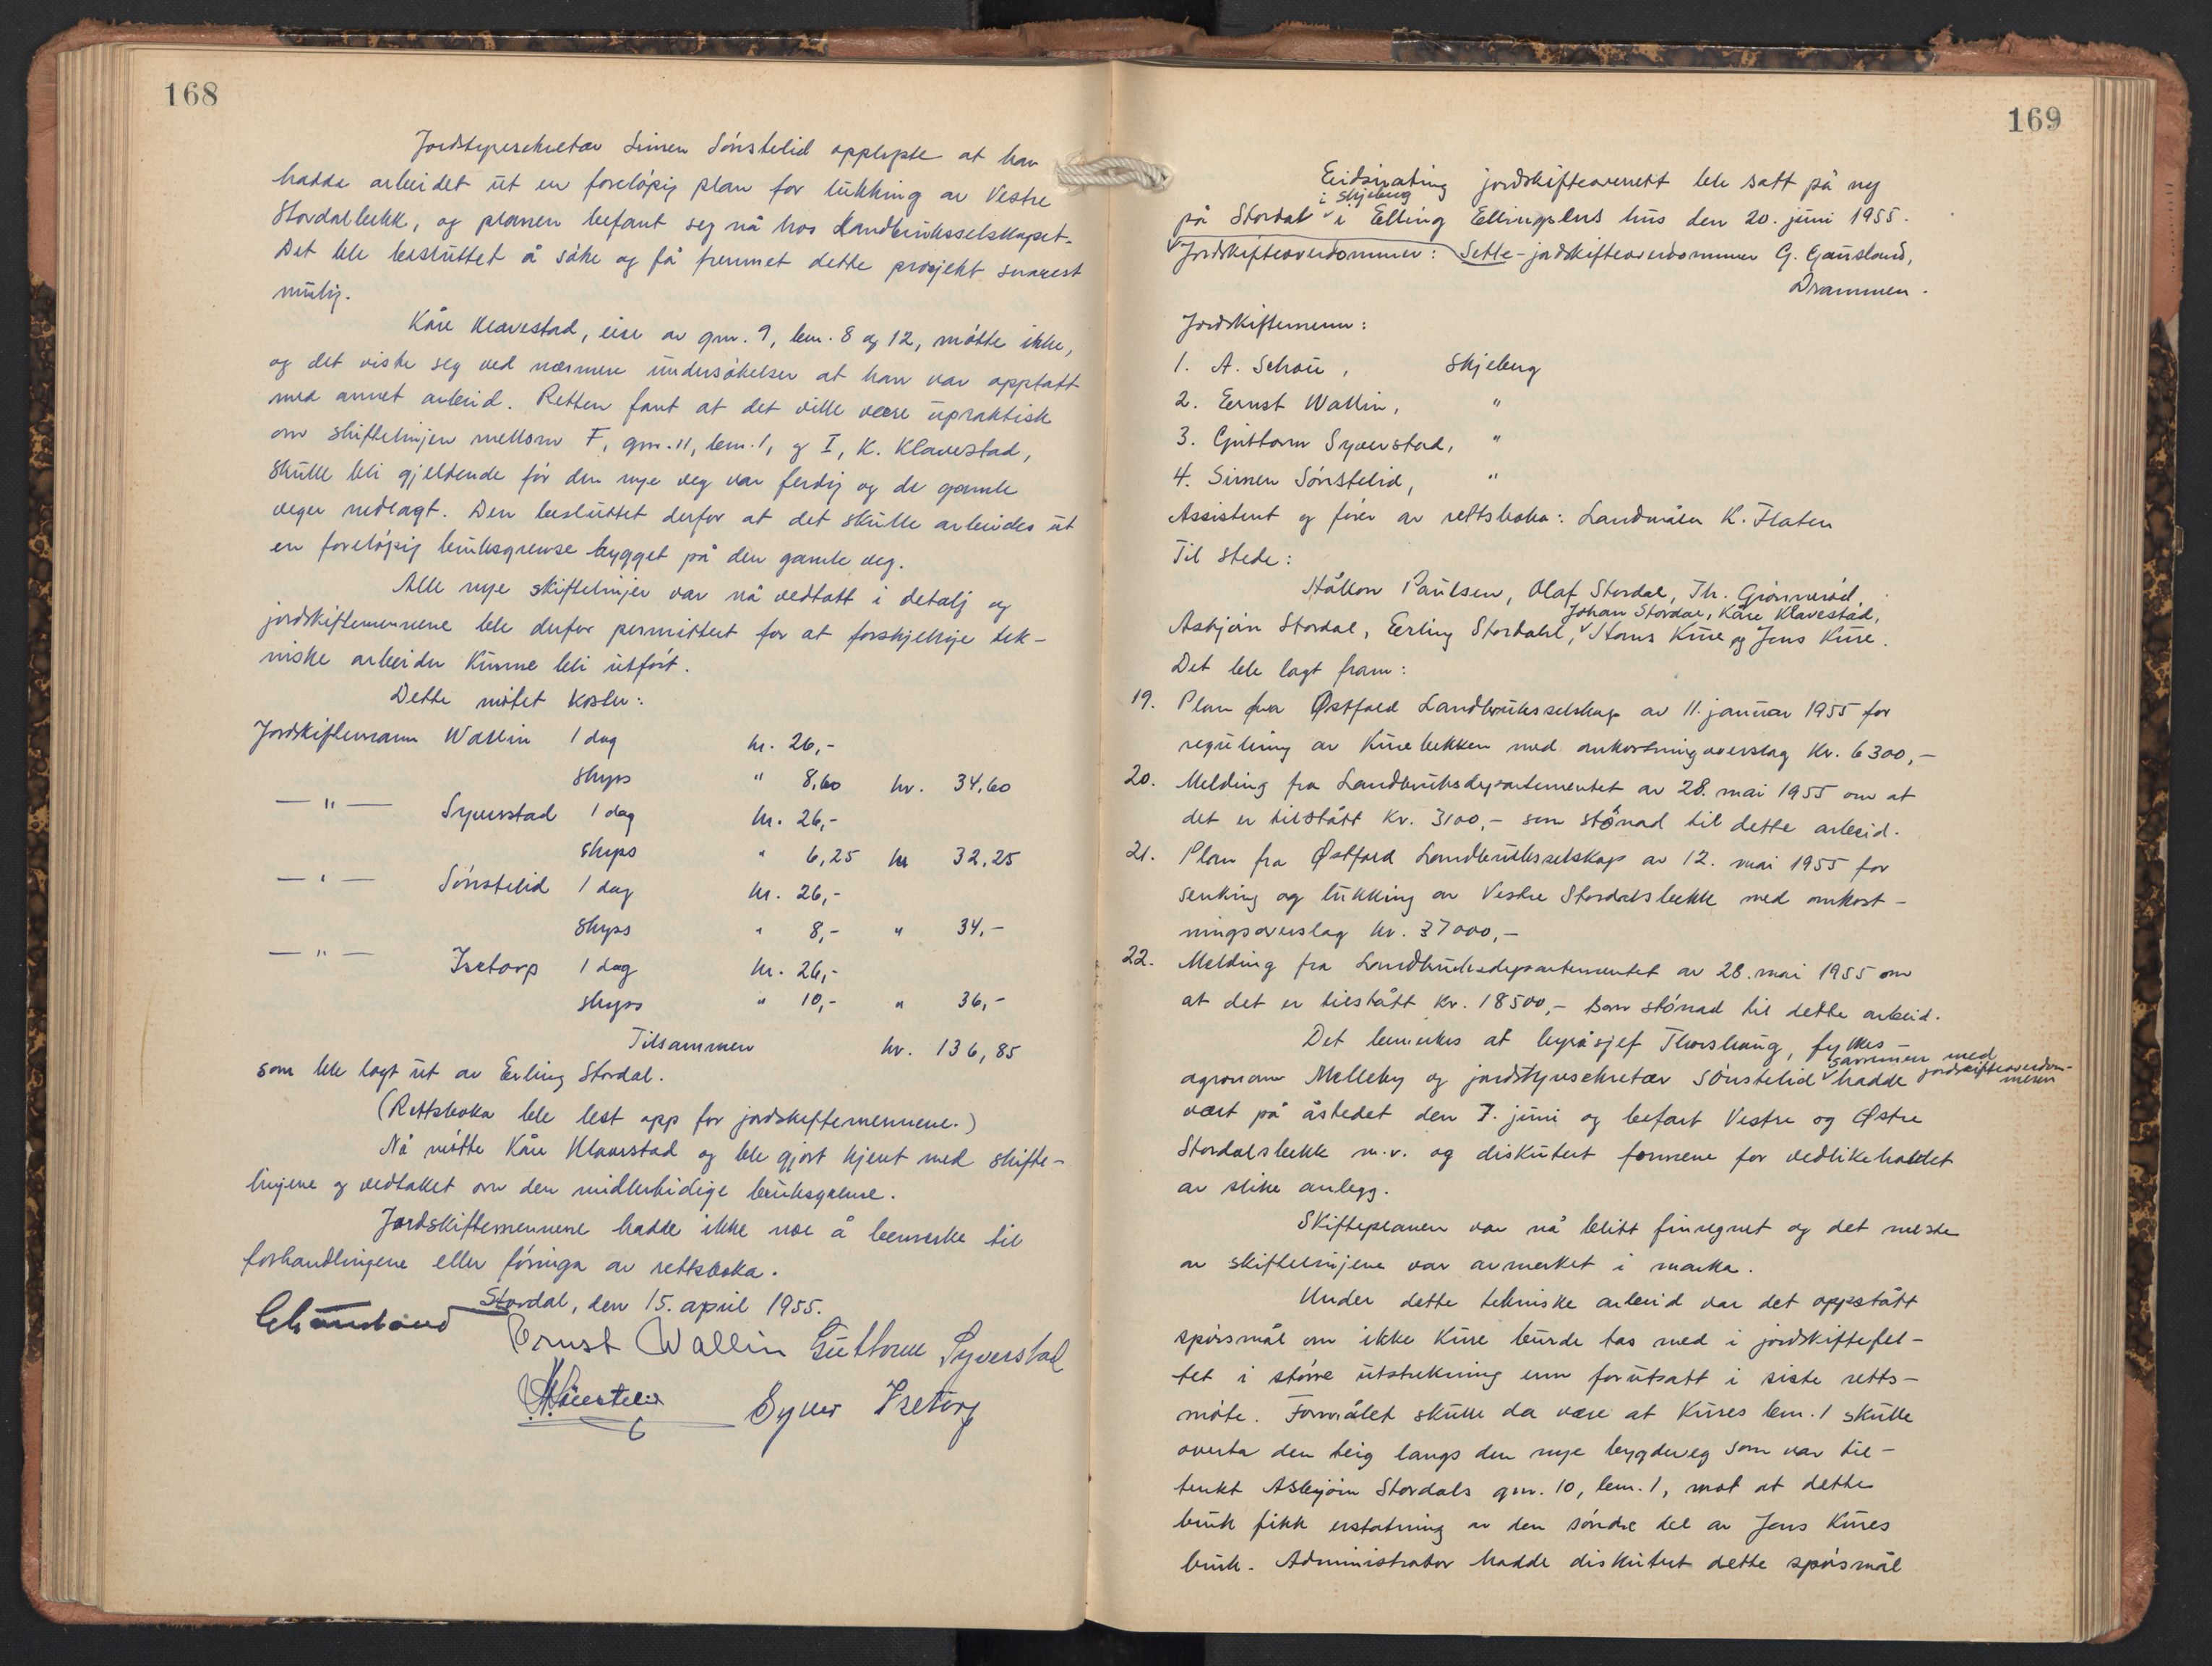 168
Jordstyresekretær Simen Sønstelid opplyste at han
hadde arbeidet ut en foreløpig plan for lukking av Vestre
Stordalbekk, og planen befant seg nå hos Landbruksselskapet.
Det ble besluttet å søke og få fremmet dette prosjekt snarest
mulig.
Kåre Klavestad, eier av gnr. 9, bnr. 8 og 12, møtte ikke,
og det viste seg ved nærmere undersøkelser at han var opptatt
med annet arbeid. Retten fant at det ville være upraktisk
om skiftelinjen mellom F, gnr. 11, bnr. 1, og I, K. Klavestad,
skulle bli gjeldende før den nye veg var ferdig og de gamle
veger nedlagt. Den besluttet derfor at det skulle arbeides ut
en foreløpig bruksgrense bygget på den gamle veg.
Alle nye skiftelinjer var nå vedtatt i detalj og
jordskiftemennene ble derfor permittert for at forskjellige tek-
niske arbeider kunne bli utført.
Dette møtet koster:
Jordskiftemann Wallin 1 dag kr. 26,-
skyss " 8,60 kr. 34,60
— " — Syverstad 1 dag kr. 26,-
skyss " 6,25 kr 32,25
— " — Sønstelid 1 dag kr. 26,-
skyss " 8,- " 34,-
— " — Isetorp 1 dag kr. 26,-
skyss " 10,- " 36,-
Tilsammen kr. 136,85
som ble lagt ut av Erling Stordal.
(Rettsboka ble lest opp for jordskiftemennene.)
Nå møtte Kåre Klavestad og ble gjort kjent med skifte-
linjene og vedtaket om den midlertidige bruksgrense.
Jordskiftemennene hadde ikke noe å bemerke til
forhandlingene eller føringa av rettsboka.
Stordal, den 15. april 1955.
Ernst Wallin Guttorm Syverstad
Sønstelid Syver Isetorp
169
Eidsivating jordskifteoverrett ble satt på ny
i Skjeberg
på Stordal i Elling Ellingsens hus den 20. juni 1955.
Jordskifteoverdommer: Sette-jordskifteoverdommer G. Gausland,
Drammen.
Jordskiftemenn:
1. A. Schou, Skjeberg
2. Ernst Wallin, "
3. Guttorm Syverstad, "
4. Simen Sønstelid, "
Assistent og fører av rettsboka: Landmåler K. Flaten
Til stede:
Håkon Paulsen, Olaf Stordal, Th. Grønnerød,
Johan Stordal, Kåre Klavestad,
Asbjørn Stordal, Erling Stordahl, Kure og Jens Kure.
Det ble lagt fram:
19. Plan fra Østfold Landbruksselskap av 11. januar 1955 for
regulering av Kurebekken med omkostningsoverslag kr. 6300,-
20. Melding fra Landbruksdepartementet av 28. mai 1955 om at
det er tilstått kr. 3100,- som stønad til dette arbeid.
21. Plan fra Østfold Landbruksselskap av 12. mai 1955 for
senking og lukking av Vestre Stordalsbekk med omkost-
ningsoverslag kr. 37000,-
22. Melding fra Landbruksdepartementet av 28. mai 1955 om
at det er tilstått kr. 18500,- som stønad til dette arbeid.
Det bemerkes at byråsjef Thorshaug, fylkes-
sammen med jordskifteoverdom-
meren
agronom Melleby og jordstyresekretær Sønstelid hadde
vært på åstedet den 7. juni og befart Vestre og Østre
Stordalsbekk m.v. og diskutert formene for vedlikeholdet
av slike anlegg.
Skifteplanen var nå blitt finregnet og det meste
av skiftelinjene var avmerket i marka.
Under dette tekniske arbeid var det oppstått
spørsmål om ikke Kure burde tas med i jordskiftefel-
tet i større utstrekning enn forutsatt i siste retts-
møte. Formålet skulle da være at Kures bnr. 1 skulle
overta den teig langs den nye bygdeveg som var til-
tenkt Asbjørn Stordals gnr. 10, bnr. 1, mot at dette
bruk fikk erstatning av den søndre del av Jens Kures
bruk. Administrator hadde diskutert dette spørsmål